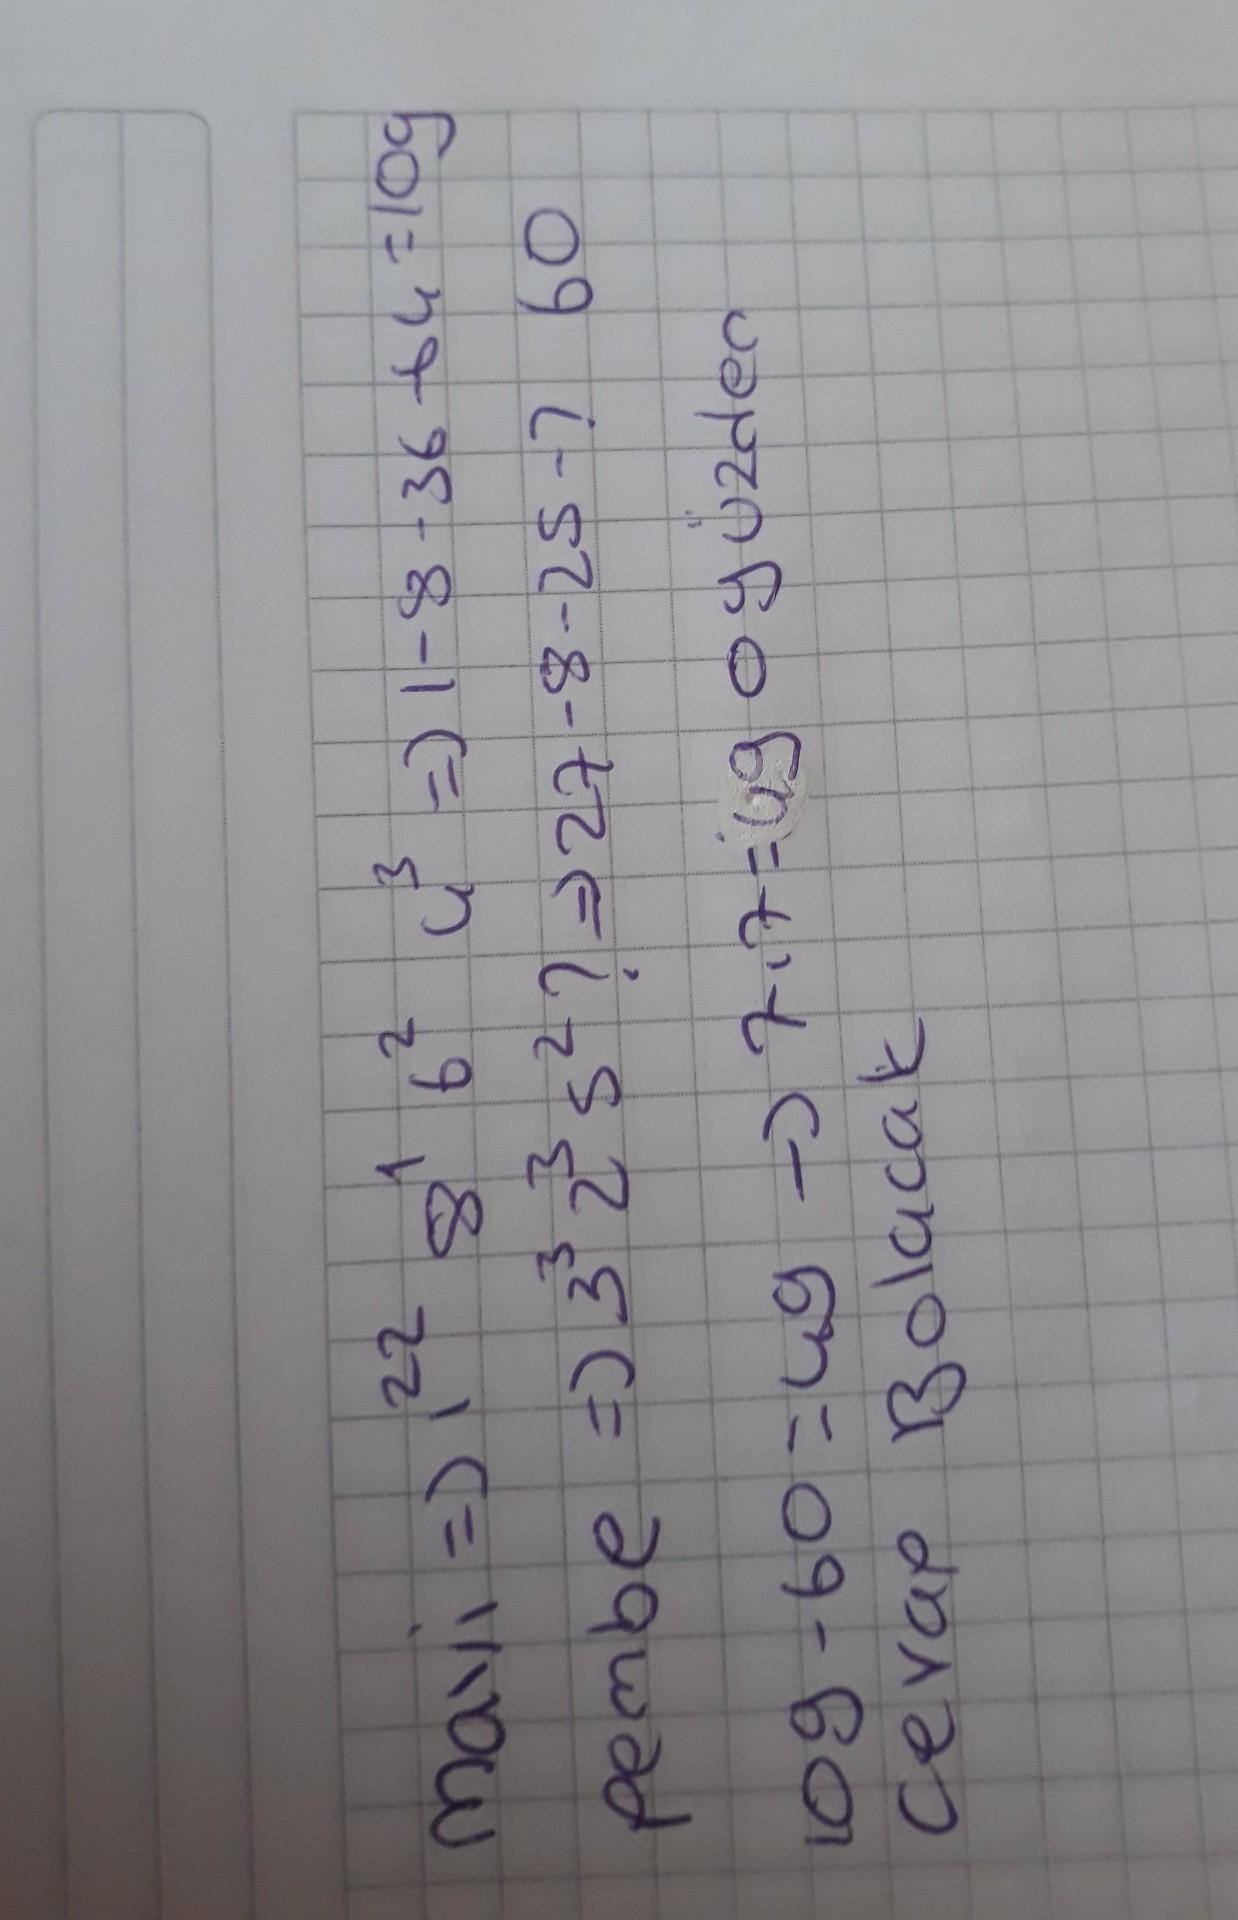 mavi => 1²² 8¹ 6² 4³ => 1-8-36+64=109
pembe => 3³ 2³ 5² ? => 27-8-25-? 60
109-60=49 -> 7.7=49 o yüzden
cevap B olacak